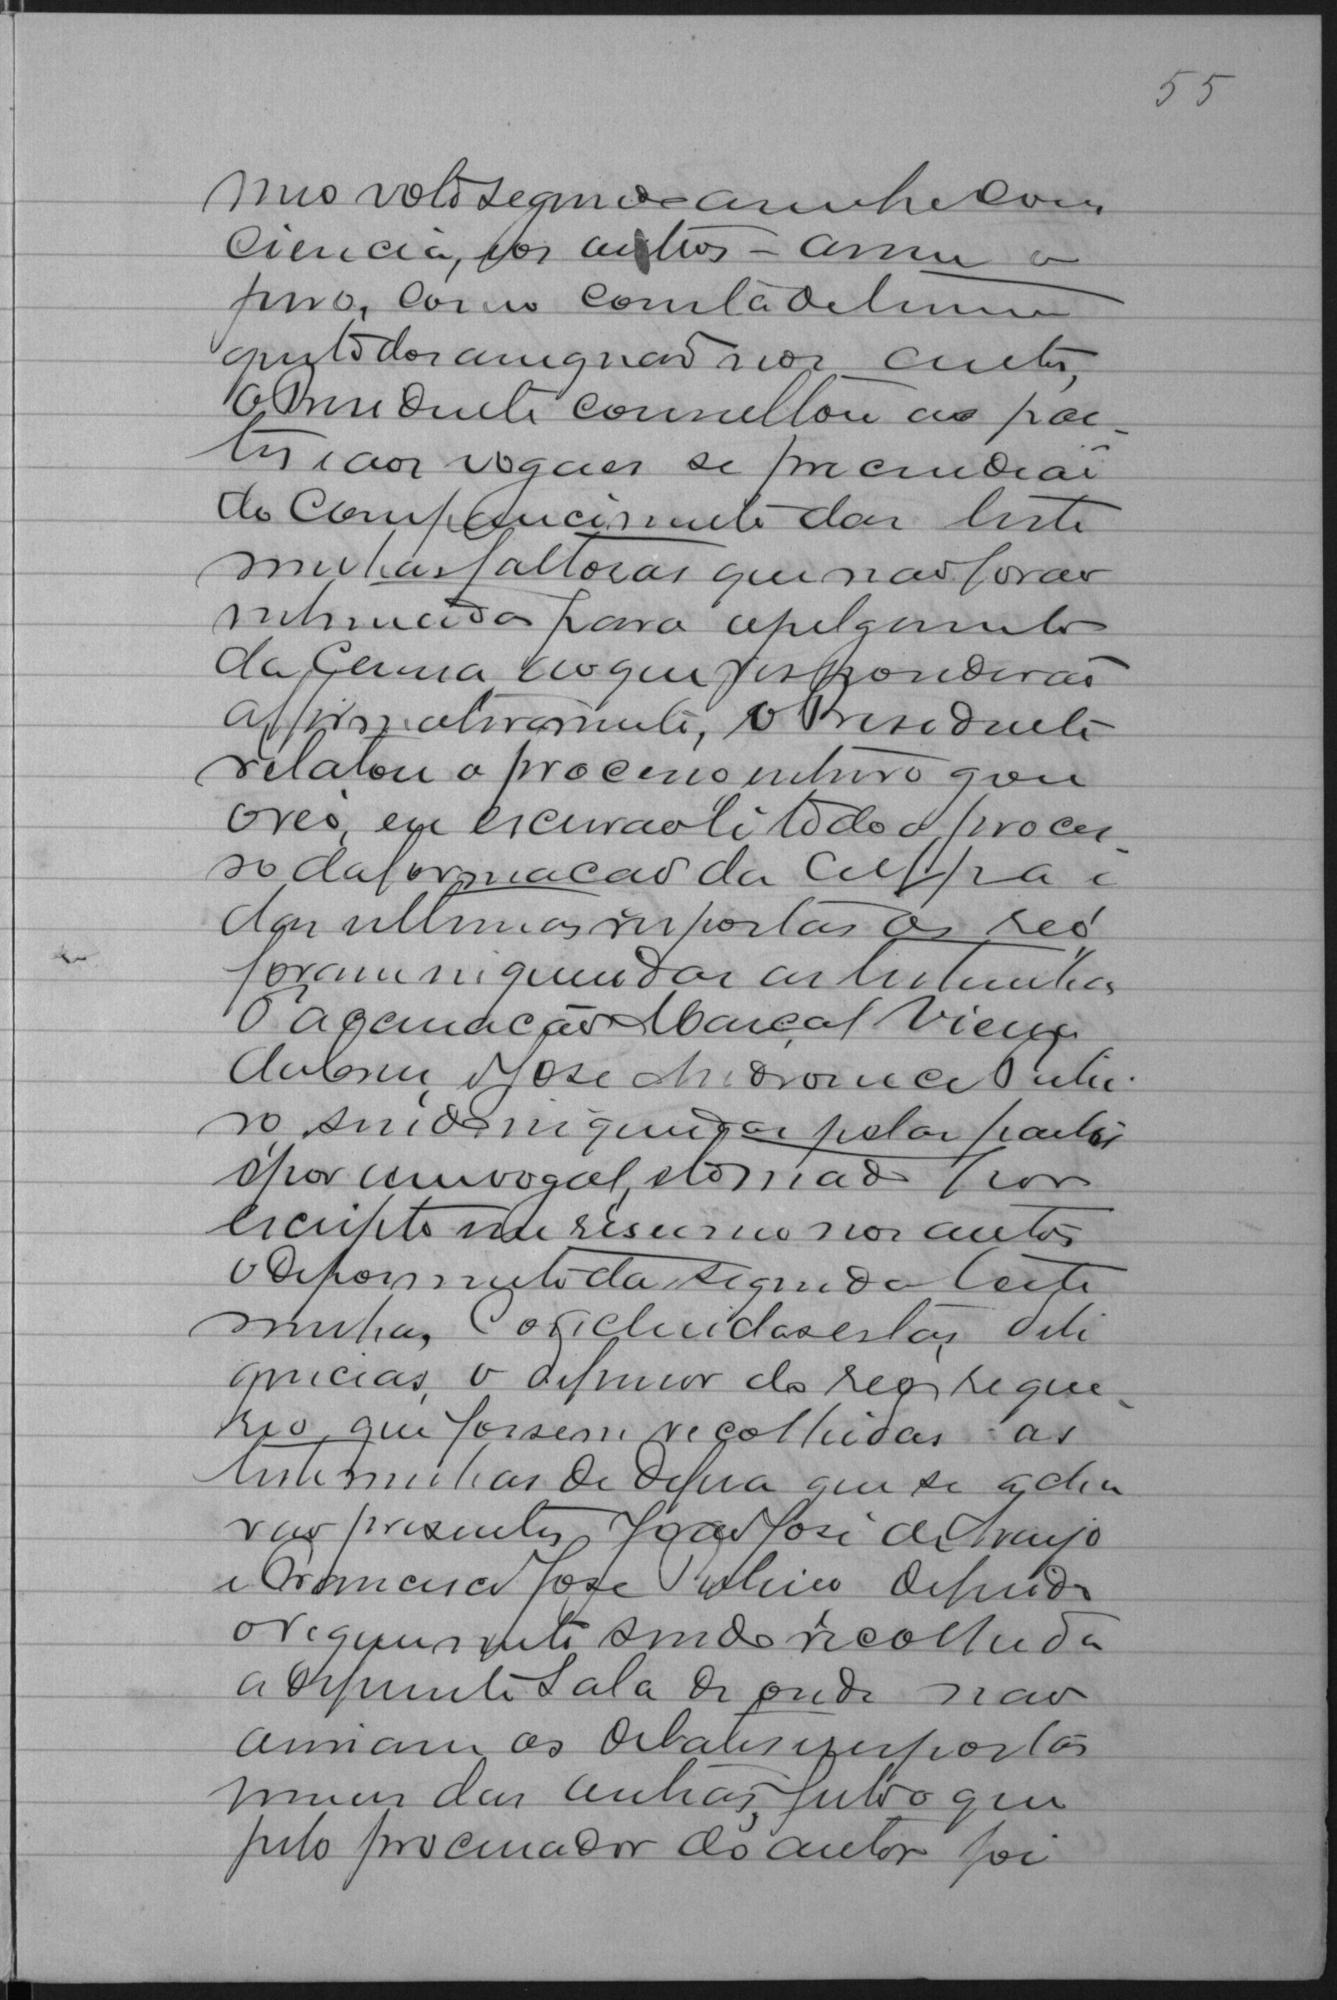 55
meo voto segundo a minha Cons
ciencia, os outros - assim o
juro, como consta do termo
junto dos
o Presidente consultou as par-
tes e aos vogaes se prescindiaõ
do Comparecimento das teste
munhas faltosas que nao forao
intimadas para o julgamento
da Causa ao que responderaõ
affirmativamente, o Presidente
relatou o processo
o reo, eu escrivao li todo o proces-
so da formacao da Culppa e
das ultimas respostas os reo
foram inqueridas as testemunhas
d'acausacão Marçal Vieira
José Pinhei-
ro, sendo inqueridas pelas partes
e por um vogal, e tomado por
escripto em resumo nos autos
o depoimento da segunda teste
munha, Concluidas estas deli
gencias, o defensor do reo reque-
reo que fossem recolhidas as
testemunhas de defesa que se acha
vao presentes, Joao José de Araujo
e Francisco Jose Pinheiro
o requerimento sendo recolhida
a differente Sala de onde nao
ouviam os debates e respostas
umas das outras, feito o que
pelo procurador do autor foi